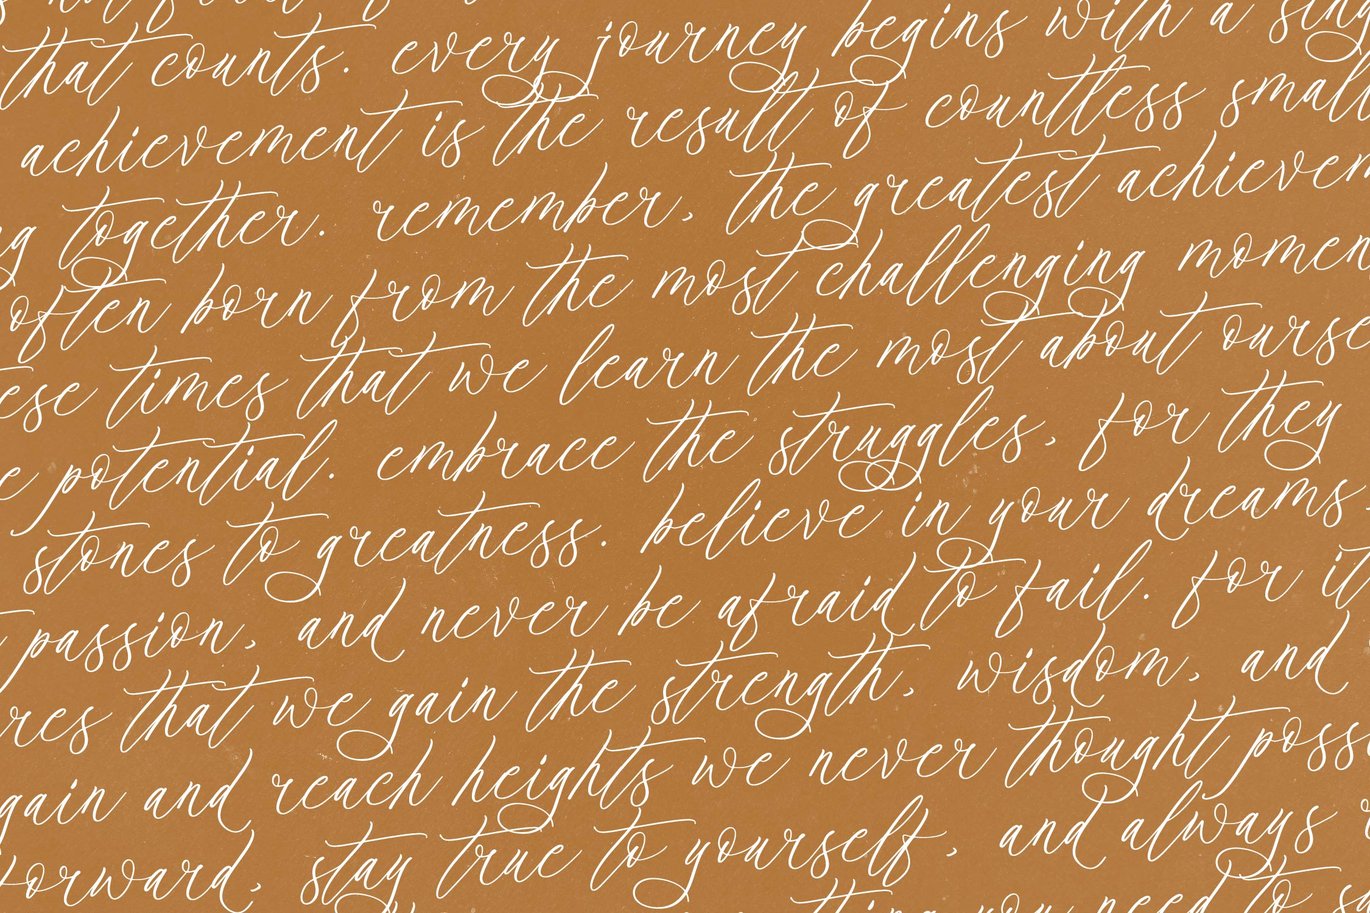 that counts. every journey begins with a
achievement is the result of countless small
together. remember, the greatest
often born from the most challenging
times that we learn the most about
potential. embrace the struggles, for they
stones to greatness. believe in your dreams
passion, and never be afraid to fail. for
that we gain the strength, wisdom, and
and reach heights we never thought
stay true to yourself, and always
you need to